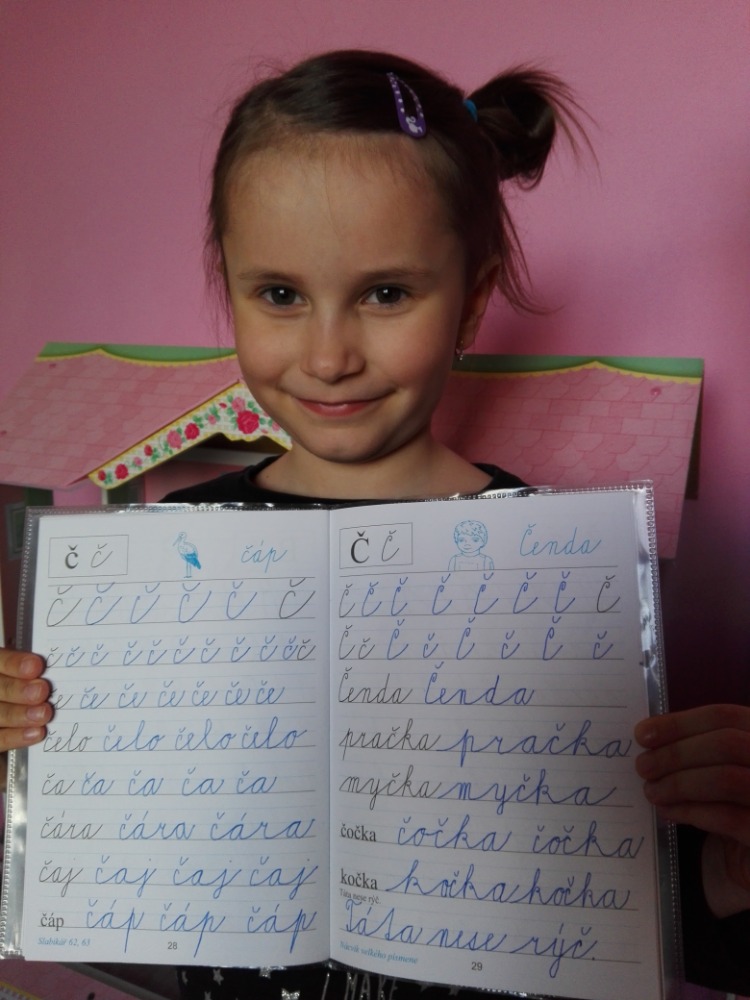 č č čáp
Č Č Č Č Č Č
č č č č č č č č č č č
če če če če če če če
čelo čelo čelo čelo
ča ča ča ča ča
čára čára čára
čaj čaj čaj čaj
čáp čáp čáp čáp
Slabikář 62, 63
28
Č Č Čenda
Č Č Č Č Č Č Č Č
Č č Č č Č č Č č
Čenda Čenda
pračka pračka
myčka myčka
čočka čočka čočka
kočka kočka kočka
Táta nese rýč.
Táta nese rýč.
Nácvik velkého písmene
29
MAKE